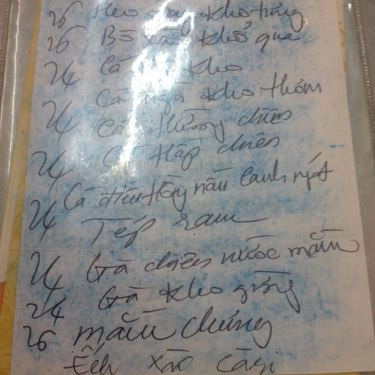 26 Heo kho trứng
26 Bò xào khổ qua
24 Cá kho
Cá ngừ kho thơm
24 Cá chiên
24 Cá hấp chiên
Cá điêu hồng nấu canh ngót
24 Tép ram
24 Gà chiên nước mắm
24 Gà kho gừng
26 mắm chưng
Ếch xào cà ri